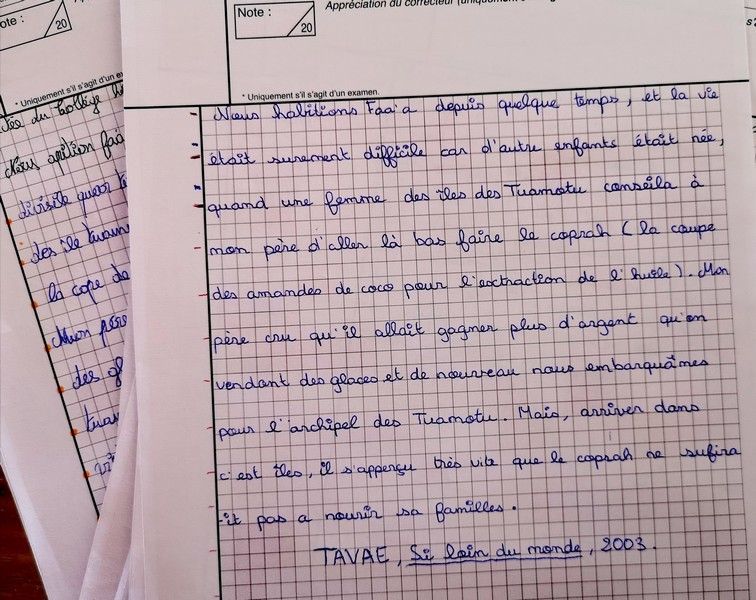 Note :
20
Appréciation du correcteur (uniquement
* Uniquement s'il s'agit d'un examen.
Nous habitions Faa'a depuis quelque temps, et la vie
était surement difficile car d'autre enfants était née,
quand une femme des îles des Tuamotu conseila à
mon père d'aller là bas faire le coprah (la coupe
des amandes de coco pour l'extraction de l'huile). Mon
père cru qu'il allait gagner plus d'argent qu'en
vendant des glaces et de nouveau nous embarquâmes
pour l'archipel des Tuamotu. Mais, arriver dans
c'est îles, il s'apperçu très vite que le coprah ne sufira
-it pas a nourir sa familles.
TAVAE, Si loin du monde, 2003.
ote :
20
* Uniquement s'il s'agit d'un ex
du Collège
Nous faa
des ile
la cope de
Mon père
des gl